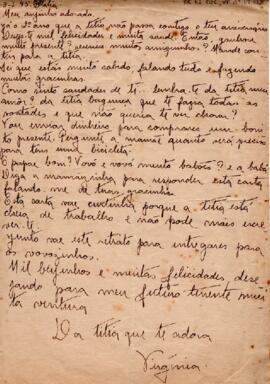 3-2-45. Italia
Meu anjinho adorado.
Já é 2º ano que a titia não passa contigo o teu aniversario
Desejo-te mil felicidades e muita saude. Então, ganhou
muito presente? e comeu muitos amiguinhos? Mande con
tar para a titia.
Sei que estás muito sabido, falando tudo e fazendo
muitas gracinhas.
Como sinto saudades de ti. Lembra-te da titia meu
amôr? da titia que te fazia todas as
vontades e que não queria te ver chorar?
Vou enviar dinheiro para comprarem um boni
to presente. Pergunte a mamãe quanto será preciso
para ter uma bicicleta.
E papae bom? Vovó e vovô muito babões? e a babá
Diga a mamãezinha para responder esta carta
falando-me de tuas gracinhas
Esta carta vae curtinha porque a titia está
cheia de trabalho e não pode mais escre
ver-te.
Junto vae este retrato para entregares para
os vovozinhos.
Mil beijinhos e muitas felicidades dese
jando para meu futuro tenente mui
ta ventura
Da titia que te adora
Virgínia.